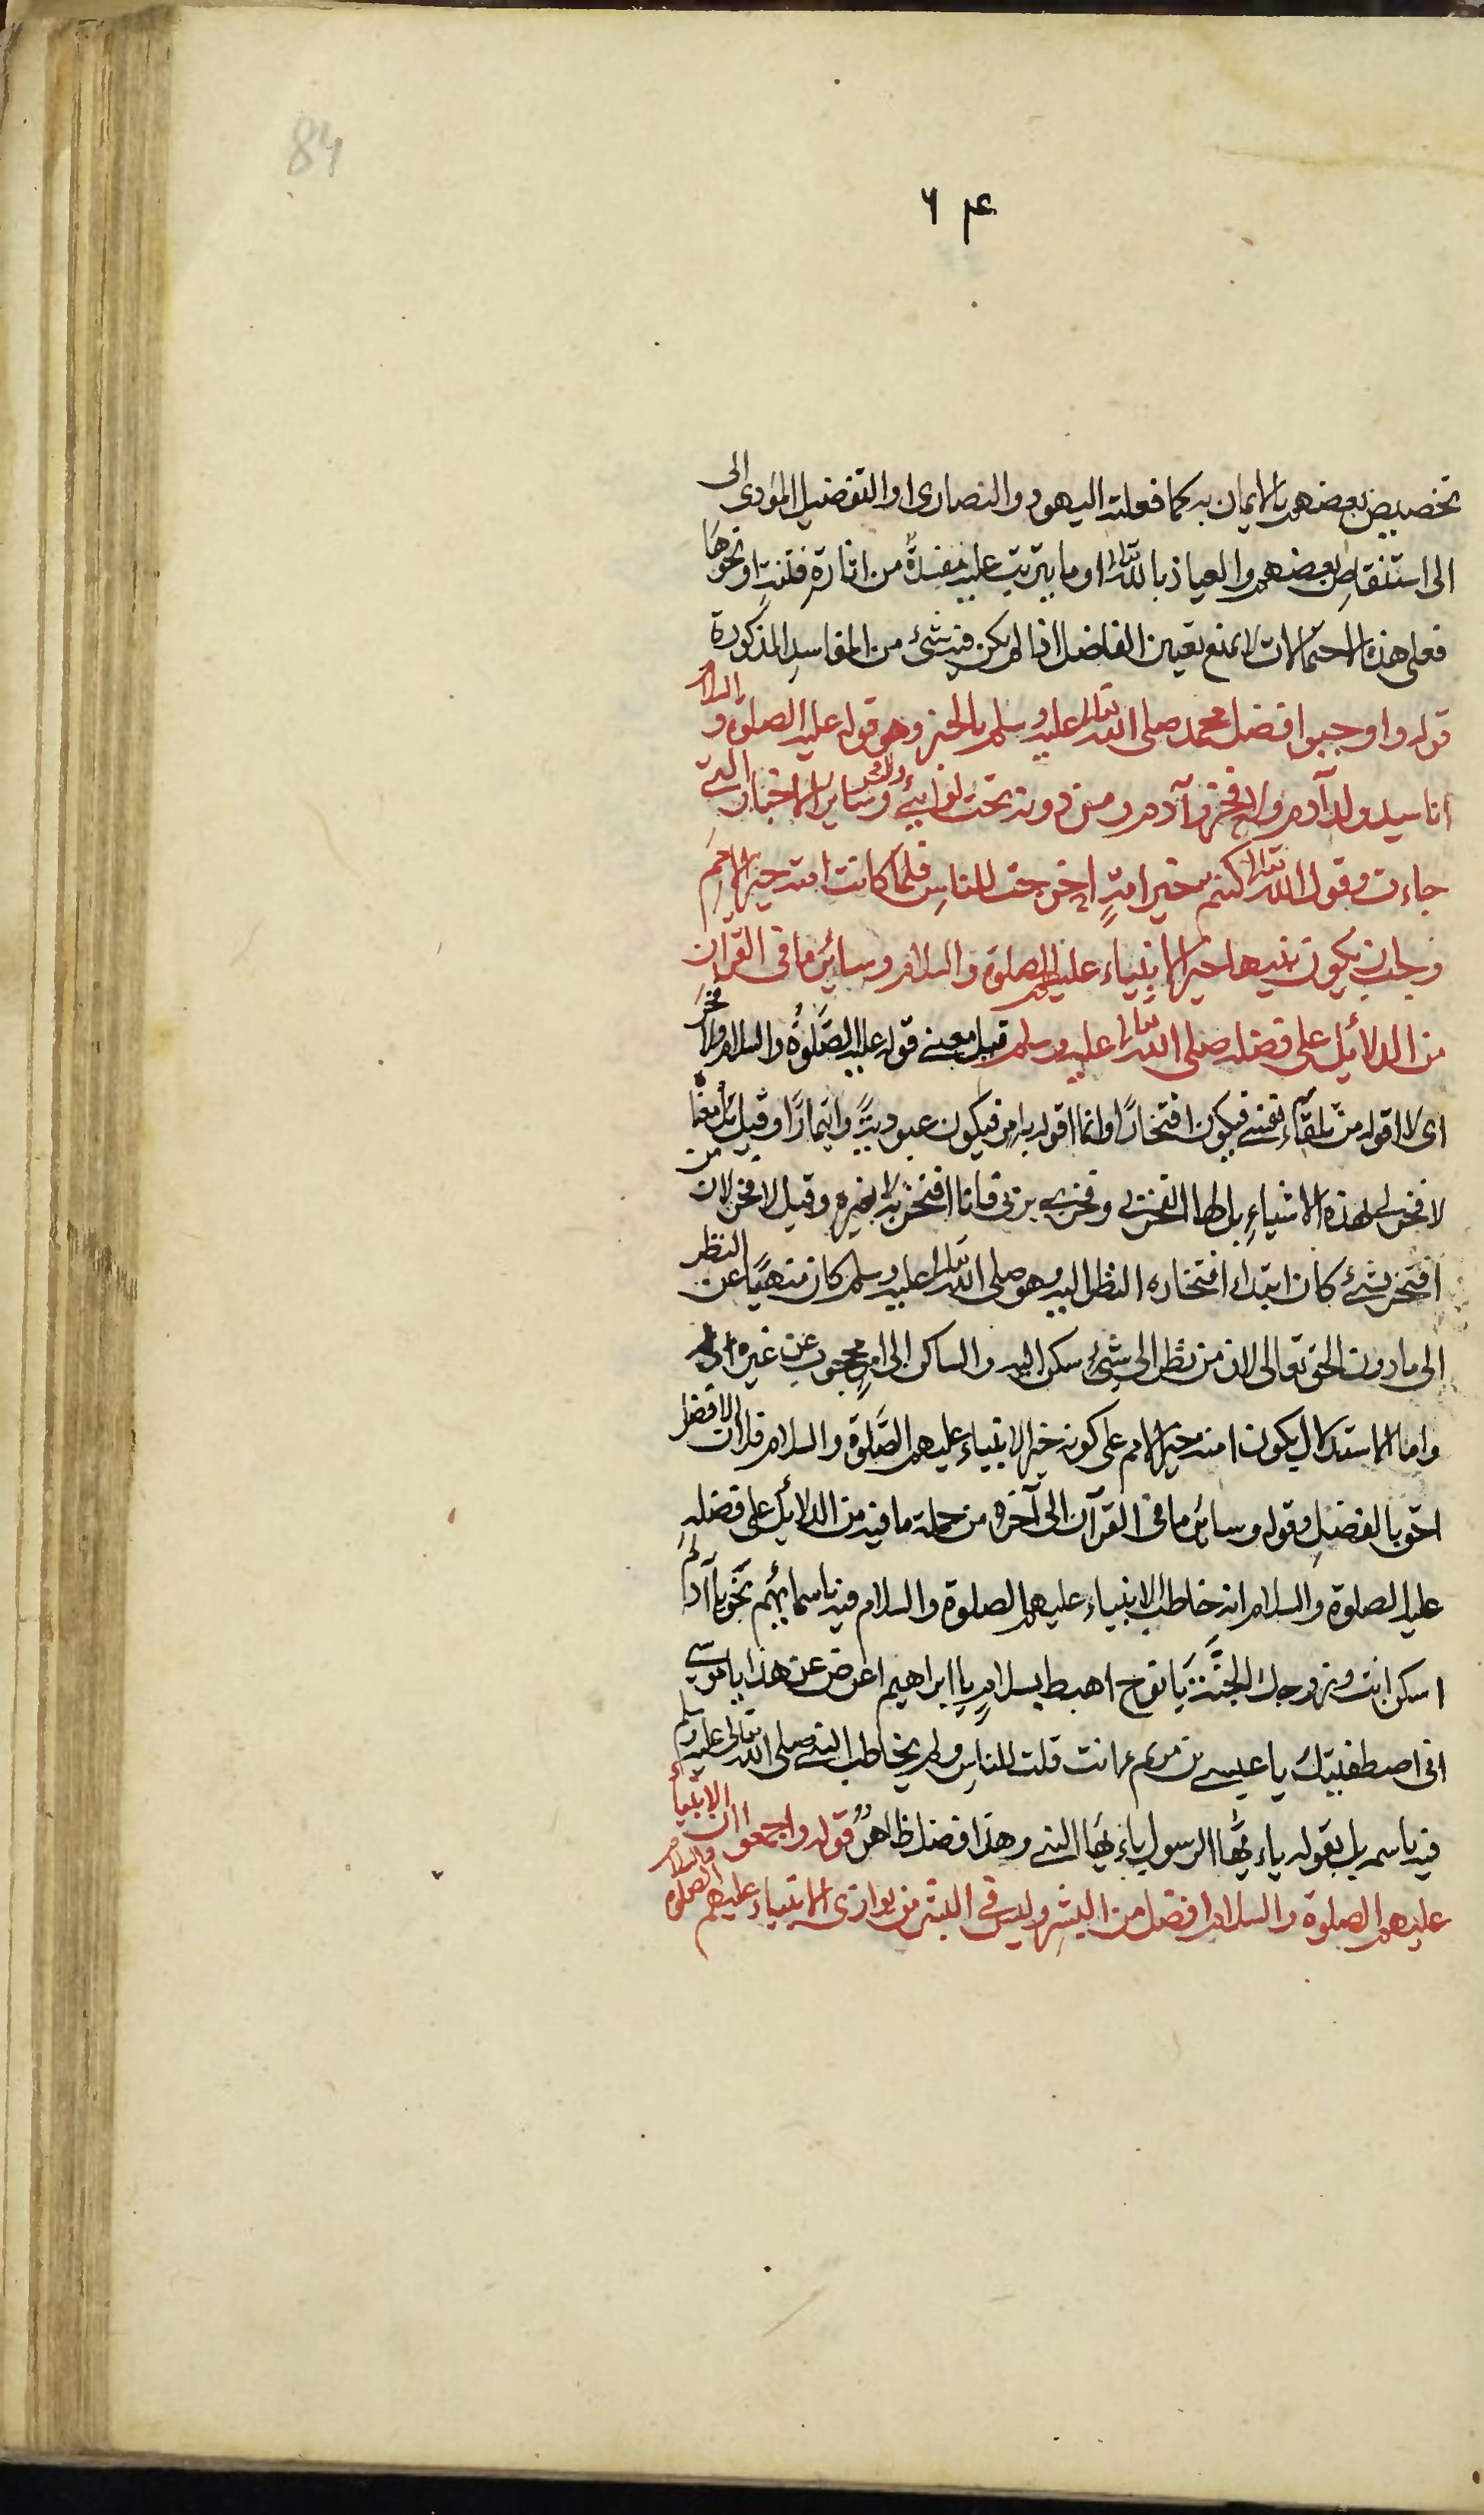 84
٦٤
تخصيص بعضهم بالايمان به كما فعلته اليهود والنصارى او التفضيل المؤدى الى
الى استنقاص بعضهم والعياذ بالله تعالى او ما يترتب عليه مفسدة من اثارة فتنة او نحوها
فعلى هذه الاحتمالات لا يمنع تعيين الفاضل اذا لم يكن فيه شئ من المفاسد المذكورة
قوله واوجبوا افضل محمد صلى الله تعالى عليه وسلم بالخبر وهو قوله عليه الصلوة والسلام
انا سيد ولد آدم ولا فخر وآدم ومن دونه تحت لوائي ولا فخر وساير الاخبار التي
جاءت وقول الله تعالى كنتم خير امة اخرجت للناس فلما كانت امته خير الامم
وجب ان يكون نبيها خير الانبياء عليهم الصلوة والسلام وسائر ما فى القرآن
من الدلائل على فضله صلى الله تعالى عليه وسلم قيل معنى قوله عليه الصلوة والسلام ولا فخر
اى لا اقوله من تلقاء نفسى فيكون افتخارا وانما اقوله بامر فيكون عبودية وايتمارا وقيل بل معناه
لا فخر لى بهذه الاشياء بل لها الفخر بى وفخرى بربى فانا افتخر به لا بغيره وقيل لا فخر لان من
افتخر بشئ كان ابتداء افتخاره النظر اليه وهو صلى الله تعالى عليه وسلم كان منهيا عن النظر
الى ما دون الحق تعالى لان من نظر الى شئ سكن اليه والساكن الى امر محجوب عن غيره
واما الاستدلال بكون امته خير الامم على كونه خير الانبياء عليهم الصلوة والسلام فلان الافضل
احق بالفضل وقوله وسائر ما فى القرآن الى آخره من جملة ما فيه من الدلائل على فضله
عليه الصلوة والسلام انه خاطب الانبياء عليهم الصلوة والسلام فيه باسمائهم نحو يا آدم
اسكن انت وزوجك الجنة يا نوح اهبط بسلام يا ابراهيم اعرض عن هذا يا موسى
انى اصطفيتك يا عيسى بن مريم ءانت قلت للناس ولم يخاطب النبى صلى الله تعالى عليه وسلم
فيه باسمه بل بقوله ياءيها الرسول ياءيها النبى وهذا فضل ظاهر قوله واجمعوا ان الانبياء
عليهم الصلوة والسلام افضل من البشر وليس فى البشر من يوازى الانبياء عليهم الصلوة والسلام